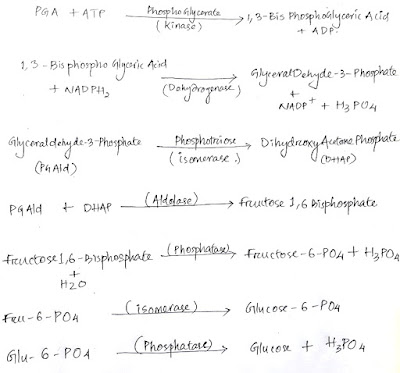 PGA + ATP Phospho Glycerate (Kinase) 1,3-Bis PhosphoGlyceric Acid + ADP.
1,3-Bisphospho Glyceric Acid + NADPH2 (Dehydrogenase) GlyceralDehyde-3-Phosphate + NADP+ + H3PO4
Glyceraldehyde-3-Phosphate (PGAld) Phosphotriose (isomerase.) Dihydroxy Acetone Phosphate (DHAP)
PGAld + DHAP (Aldolase) Fructose 1,6 Bisphosphate
Fructose 1,6-Bisphosphate + H2O (Phosphatase) Fructose-6-PO4 + H3PO4
Fru-6-PO4 (isomerase) Glucose-6-PO4
Glu-6-PO4 (Phosphatase) Glucose + H3PO4